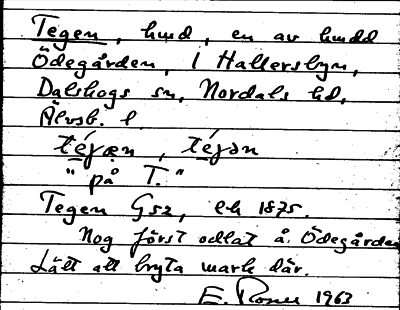 Tegen, hmd, en av hmdd
Ödegården, i Hallersbyn,
Dalskogs sn, Nordals hd,
Älvsb. l.
téγæn, téγən
"på T."
Tegen Gsz, 1875.
Nog först odlat å Ödegården
Lätt att bryta mark där.
E. 1963